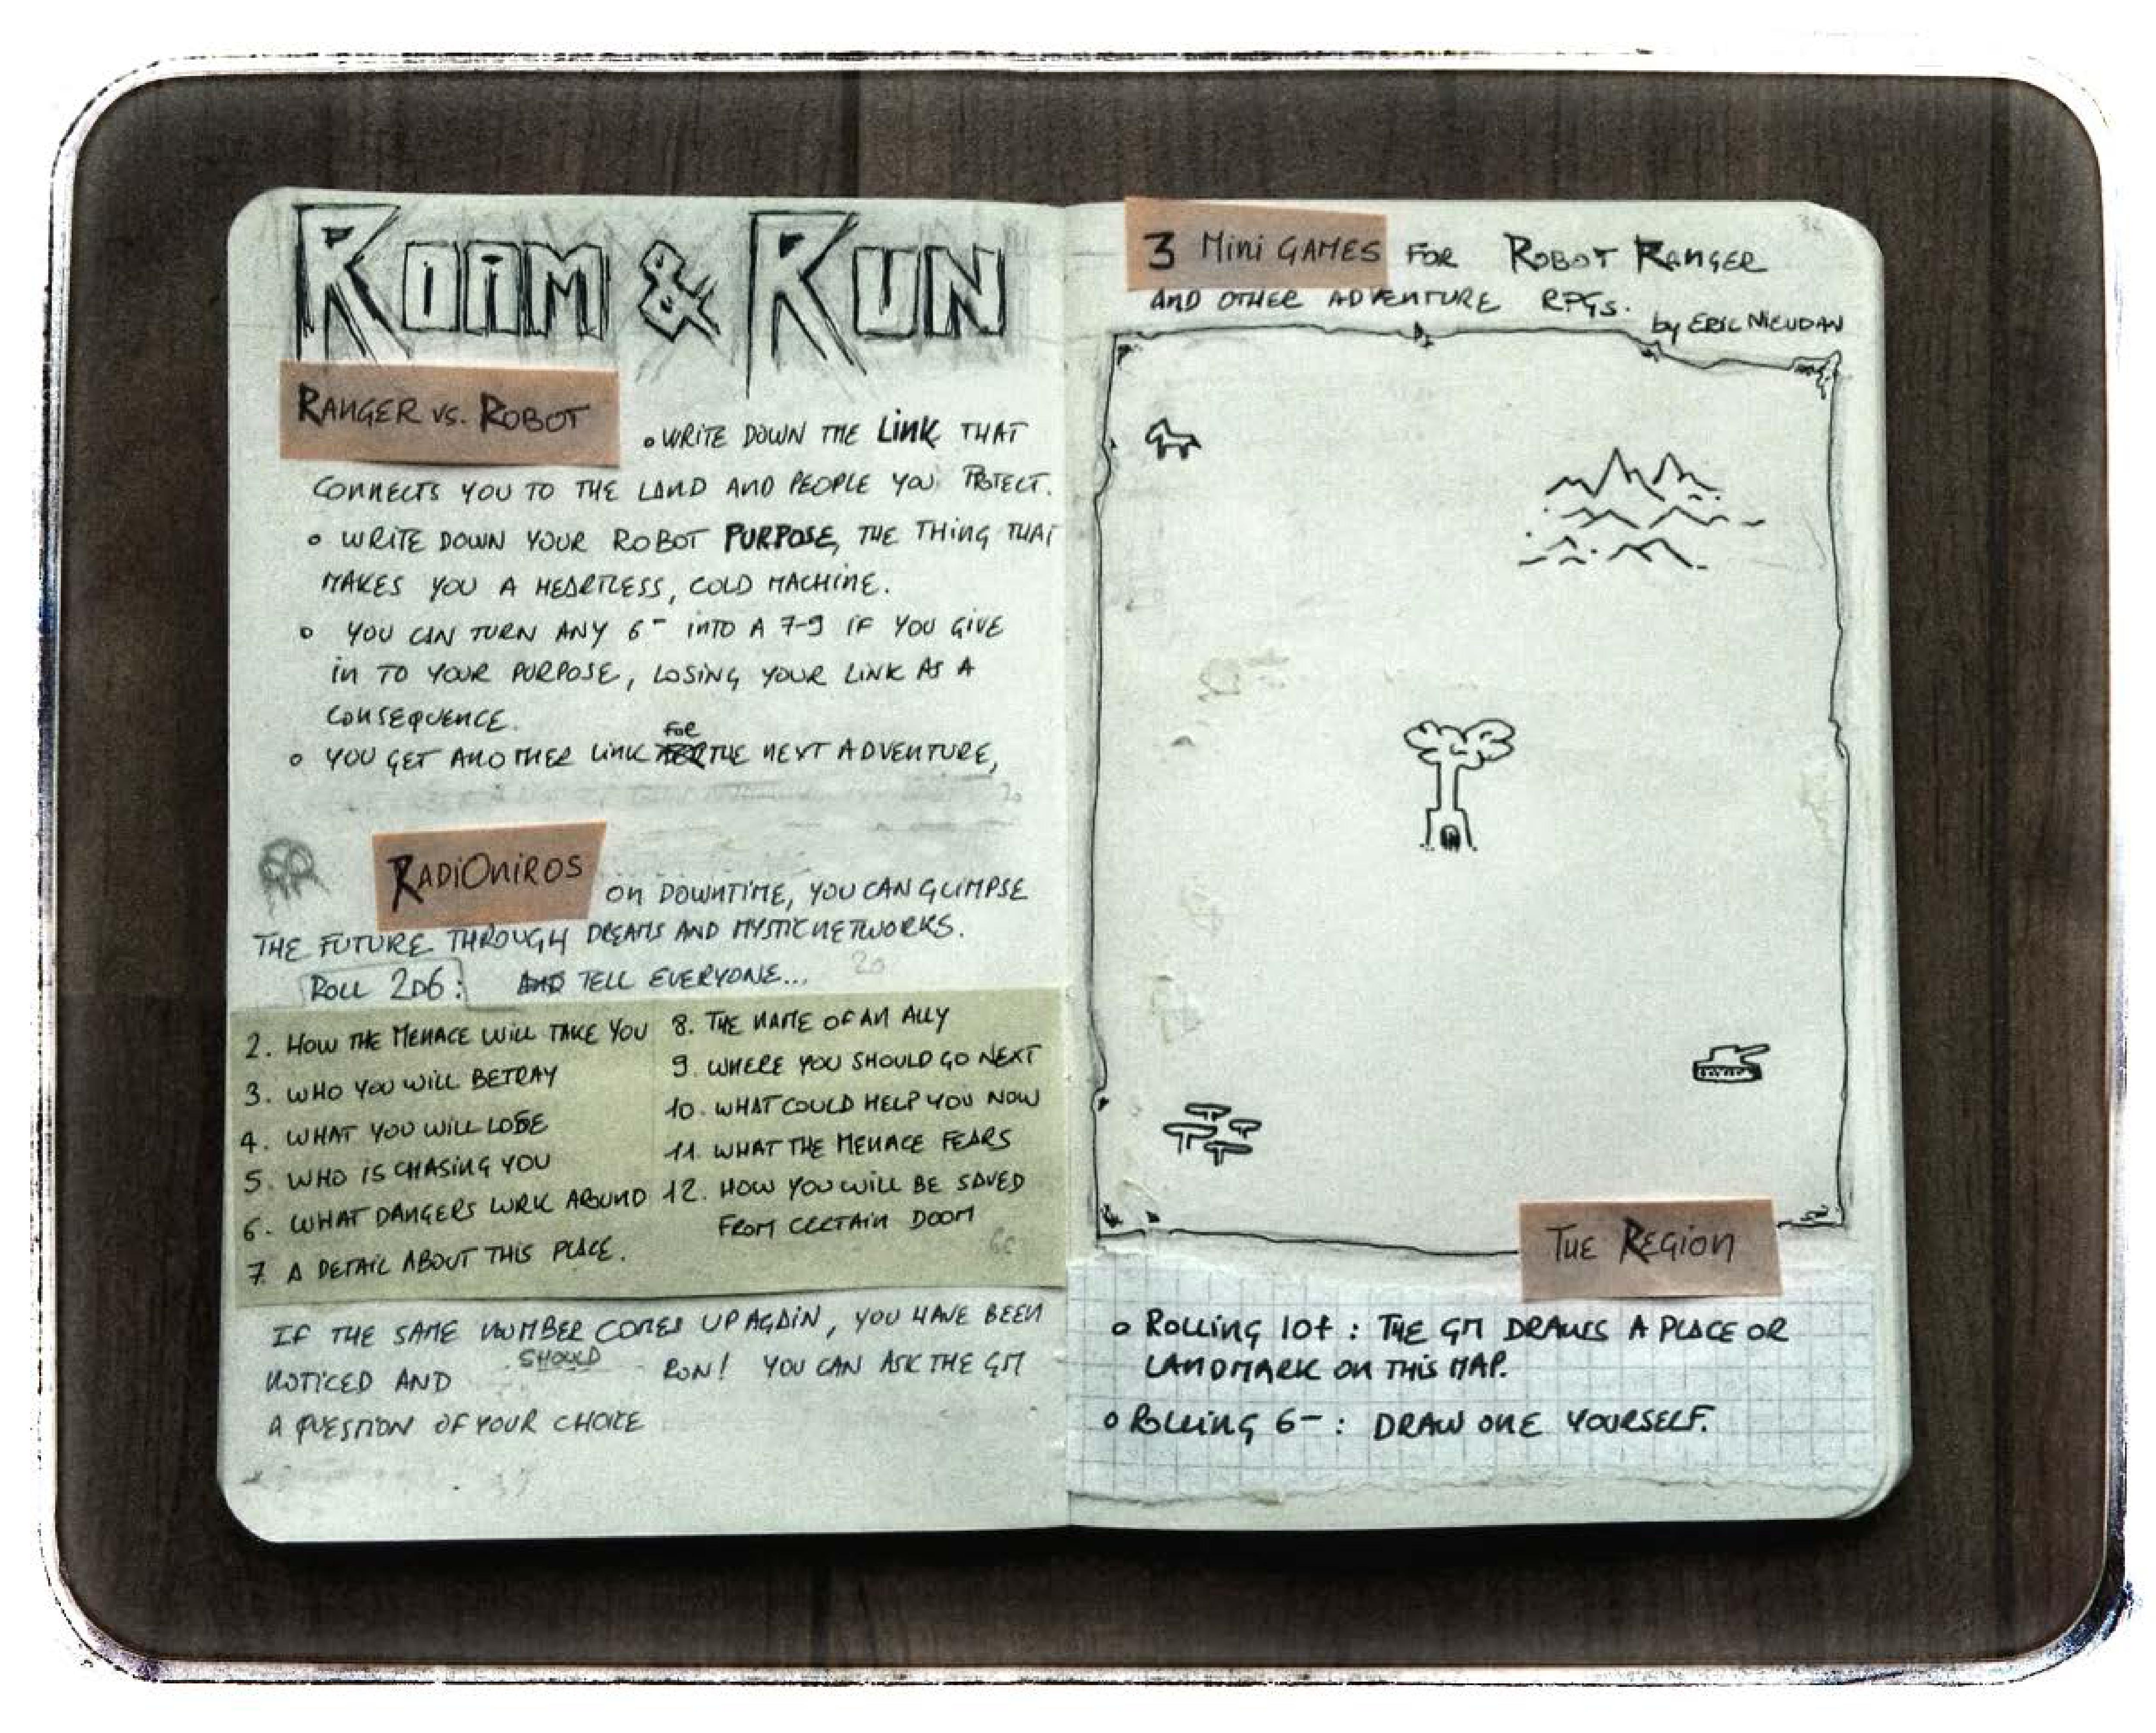 ROAM & RUN
RANGER VS. ROBOT
• WRITE DOWN THE LINK THAT
CONNECTS YOU TO THE LAND AND PEOPLE YOU PROTECT.
• WRITE DOWN YOUR ROBOT PURPOSE, THE THING THAT
MAKES YOU A HEARTLESS, COLD MACHINE.
• YOU CAN TURN ANY 6- INTO A 7-9 IF YOU GIVE
IN TO YOUR PURPOSE, LOSING YOUR LINK AS A
CONSEQUENCE.
• YOU GET ANOTHER LINK FOR THE NEXT ADVENTURE,
RADIONIROS
ON DOWNTIME, YOU CAN GLIMPSE
THE FUTURE THROUGH DREAMS AND MYSTIC NETWORKS.
ROLL 2D6: AND TELL EVERYONE...
2. HOW THE MENACE WILL TAKE YOU
3. WHO YOU WILL BETRAY
4. WHAT YOU WILL LOSE
5. WHO IS CHASING YOU
6. WHAT DANGERS LURK AROUND
7. A DETAIL ABOUT THIS PLACE.
8. THE NAME OF AN ALLY
9. WHERE YOU SHOULD GO NEXT
10. WHAT COULD HELP YOU NOW
11. WHAT THE MENACE FEARS
12. HOW YOU WILL BE SAVED
FROM CERTAIN DOOM
IF THE SAME NUMBER COMES UP AGAIN, YOU HAVE BEEN
NOTICED AND SHOULD RUN! YOU CAN ASK THE GM
A QUESTION OF YOUR CHOICE
3 MINI GAMES FOR ROBOT RANGER
AND OTHER ADVENTURE RPGS.
by ERIC NIEUDAN
THE REGION
• ROLLING 10+: THE GM DRAWS A PLACE OR
LANDMARK ON THIS MAP.
• ROLLING 6-: DRAW ONE YOURSELF.